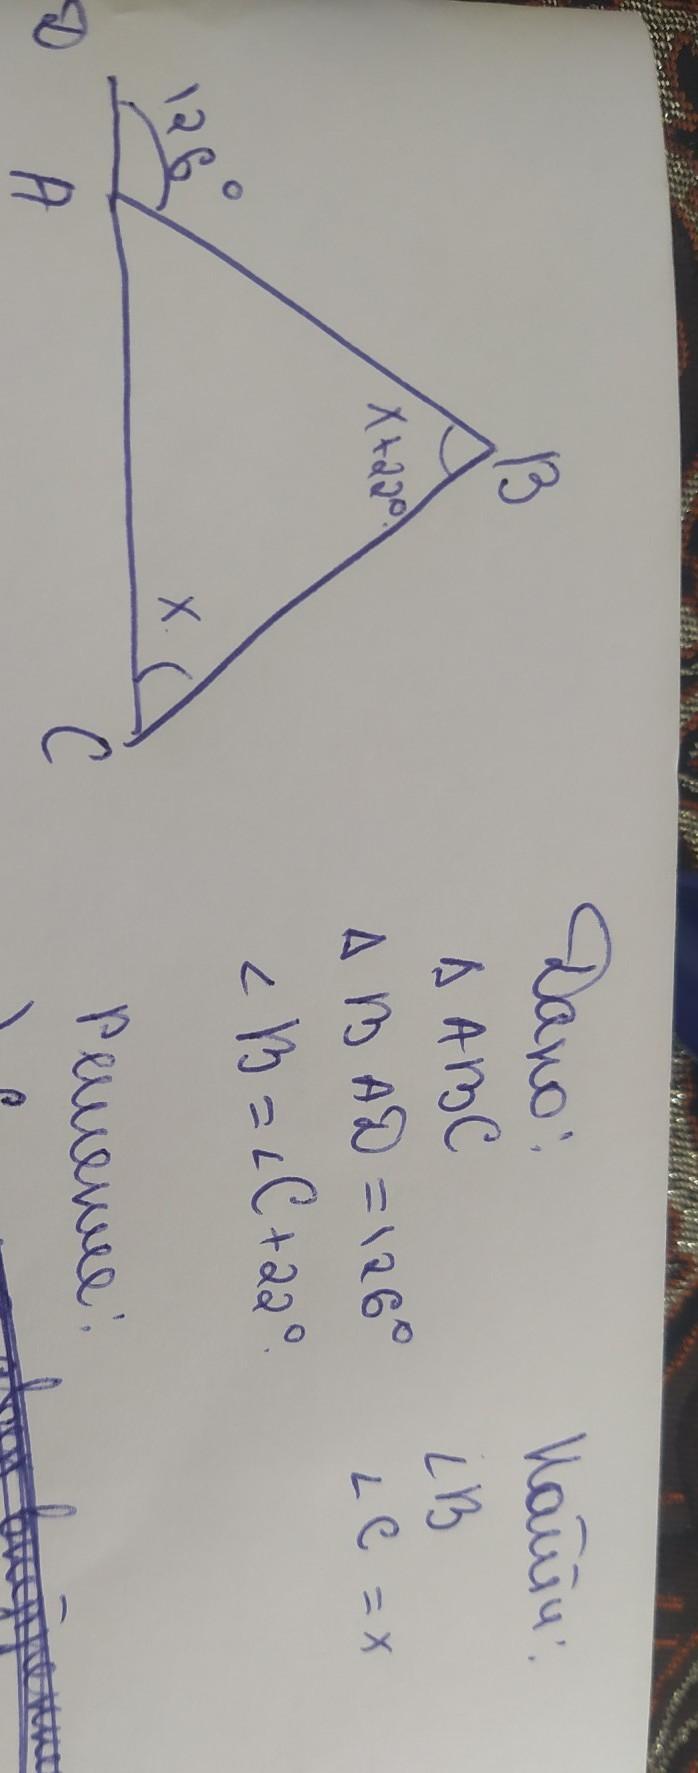 B
126°
x+22°
x
D A C
Дано:
Δ ABC
Δ BAD = 126°
∠B = ∠C + 22°.
Найти:
∠B
∠C = x
Решение: